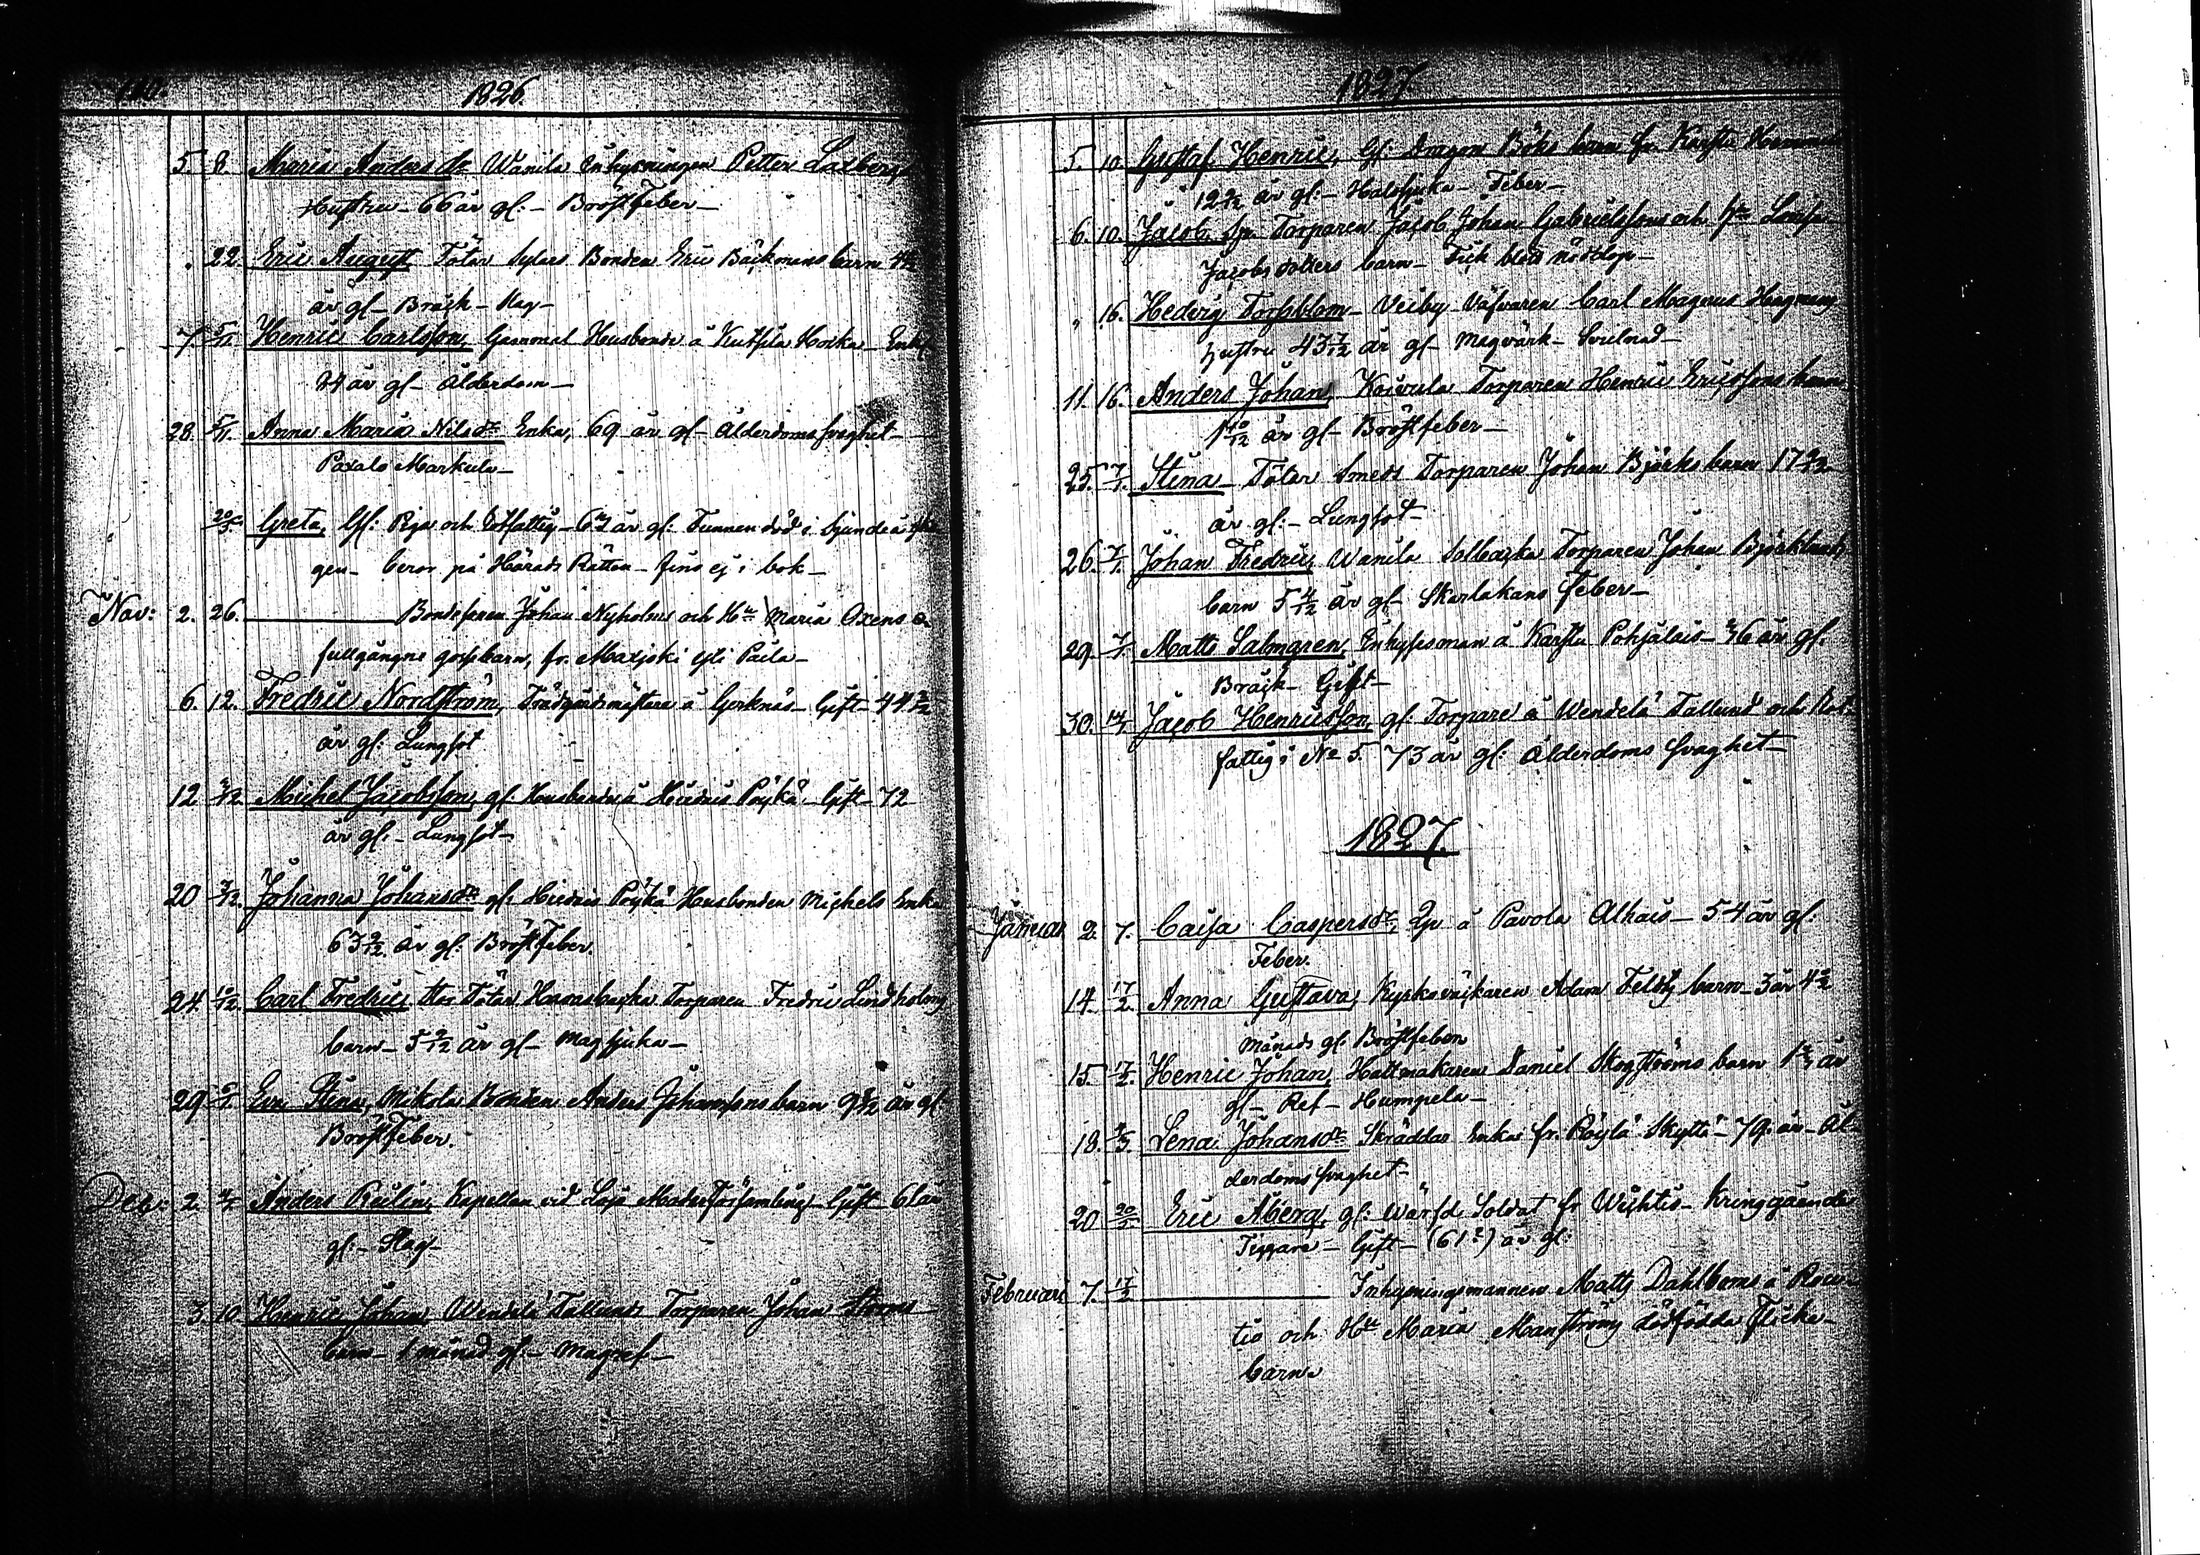 1826.
5. 8. Maria Anders dr Wanila Inhysningen Petter Laxbergs
Hustru - 66 år gl: - Bröstfeber -
" 22. Eric August, Tötar Sylars Bonden Eric Bäckmans barn
år gl - Bråck - Slag -
7 5/11 Henric Carlsson, Gammal Husbonde å Kutsila Hovka - Enkl.
84 år gl - Ålderdom -
28. 5/11. Anna Maria Nilsdr Enka, 69 år gl - Ålderdomssvaghet -
Paxalo Markula -
20/5. Greta, Gl: Piga och Rotfattig - år gl: Funnen död i Sjundeå
gen - beror på Härads Rätten - fins ej i bok -
Nov: 2. 26. Bondesonen Johan Nyholms och Hu Maria Oxens o-
fullgångne gossebarn, fr. Maxjoki
6. 12. Fredric Nordström, Trädgårdsmästare å Gerknäs - Gift 44
år gl: Lungsot
12 Michel Jacobsson, gl: Husbonde å Hiidis Pöykä - Gift - 72
år gl: - Lungsot -
20 3/12. Johanna Johansdr gl: Hiidis Pöykä Husbonden Michels Enka
63 år gl: Bröstfeber.
24. 10/12. Carl Fredric, Stor Tötar Hornsbacka Torparen Fredric Lindholms
barn - 5 år gl - Magsjuka -
29 Eva Stina, Mikola Bonden Anders Johanssons barn år gl
Bröstfeber.
Dec: 2. Anders Reilin, Kapellan vid Lojo Moderförsamling - Gift - 61 år
gl: - Slag -
3. 10. Henric Johan, Wendelä Tallund Torparen Johan Storms
barn - 1 månad gl - Magref -
1827
5. 10. Gustaf Henric, Gl: Dragon Böks barn fr. Karstu
12 år gl: - Halssjuka - Feber -
6. 10. Jacob, Torparen Jacob Johan Gabrielssons och Hu Lovisa
Jacobsdotters barn - Fick blott nöddop -
" 16. Hedvig Forsblom - Veiby Väfvaren Carl Magnus Hagmans
Hustru 43 7/12 år gl - Magvärk - Svulnad -
11. 16. Anders Johan, Koivula Torparen Henric Ericssons barn
1 10/12 år gl - Bröstfeber -
25. 7/1. Stina - Tötar Smeds Torparen Johan Björks barn 17
år gl: - Lungsot -
26. 7/1. Johan Fredric, Wanila Solbacka Torparen Johan Björklunds
barn 5 4/12 år gl - Skarlakans Feber -
29. 7/1. Matts Salmgren, Inhysesman å Karstu Pohjalais - 46 år gl.
Bråck - Gift -
30. 14/1. Jacob Henricsson, gl: Torpare å Wendelä Tallund och Rot-
fattig i No 5. 73 år gl: Ålderdoms svaghet -
1827.
Januari 2. 7. Caisa Caspersdr, å Pavola Alhais - 54 år gl:
Feber.
14. 17/2. Anna Gustava, Kyrkoväcktaren Adam Felsts barn - 3 år 4
Månads gl: Bröstfeber
15. 17/2. Henric Johan, Hattmakaren Daniel Skogströms barn år
gl - Ref - Humpela -
18. Lena Johansdr Skräddar Enka fr. Röylä Skyttä - 79 år - Ål-
derdoms svaghet -
20 Eric Åberg, gl: Wärfd. Soldat fr Wichtis - Kringgående
Tiggare - Gift - (61?) år gl:
Februari 7. 17/2 Inhysningsmannen Matts Dahlboms å
tio och Hu Maria Manströms dödfödda flicke-
barn.